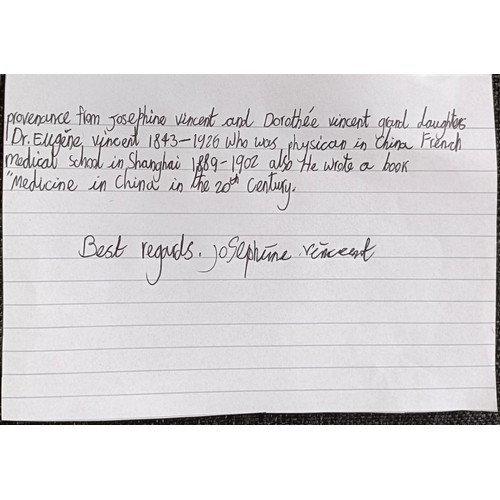 provenance from Josephine vincent and Dorothée vincent grand daughters
Dr. Eugène, vincent 1843-1926 who was, physican in china French
medical school in Shanghai 1889-1902 also He wrote a book
"Medicine in China in the 20th Century.
Best regards. joSephine. vincent